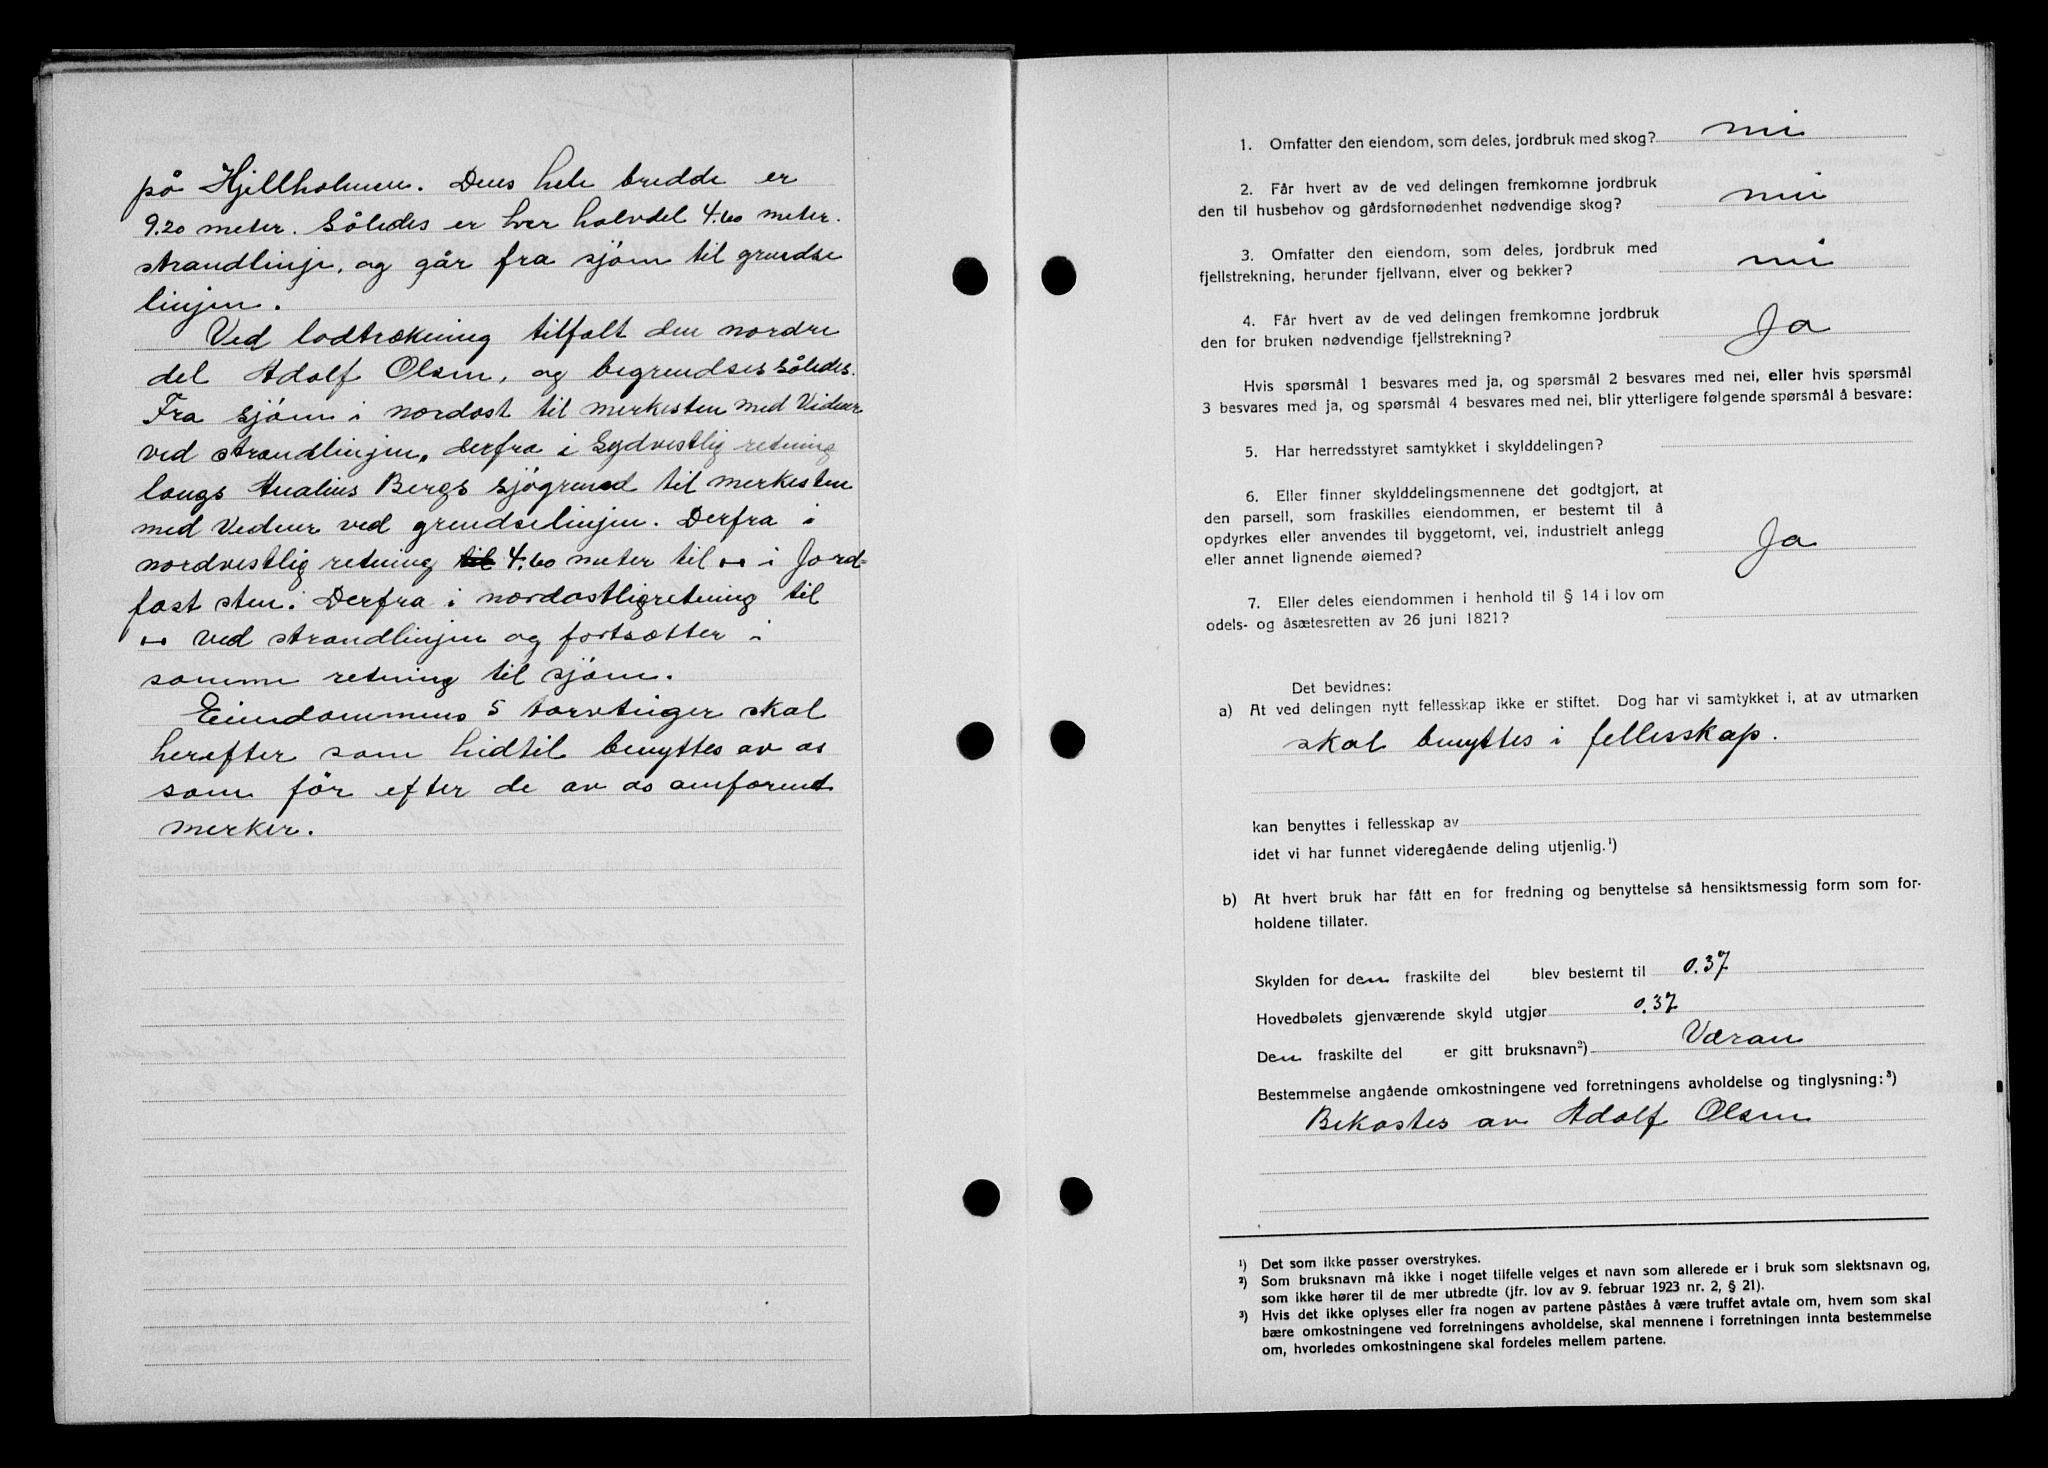 på Hjellholmen. Dens hele bredde er
9.20 meter. Således er hver halvdel 4.60 meter.
strandlinje, og går fra sjøen til grendse
linjen.
Ved lodtrækning tilfalt den nordre
del Adolf Olsen, og begrendses således.
Fra sjøen i nordost til merkesten med Videur
ved strandlinjen, derfra i Sydvestlig retning
langs Analius Bergs sjøgrund til merkesten
med Vedeur ved grendselinjen. Derfra i
nordvestlig retning til 4.60 meter til •–• i Jord=
fast sten. Derfra i nordostlig retning til
•–• ved strandlinjen og fortsætter i
samme retning til sjøen.
Eiendommens 5 torvtinger skal
herefter som hidtil benyttes av os
som før efter de av os omforend
merker.
1. Omfatter den eiendom, som deles, jordbruk med skog? nei
2. Får hvert av de ved delingen fremkomne jordbruk
den til husbehov og gårdsfornødenhet nødvendige skog? nei
3. Omfatter den eiendom, som deles, jordbruk med
fjellstrekning, herunder fjellvann, elver og bekker? nei
4. Får hvert av de ved delingen fremkomne jordbruk
den for bruken nødvendige fjellstrekning? Ja
Hvis spørsmål 1 besvares med ja, og spørsmål 2 besvares med nei, eller hvis spørsmål
3 besvares med ja, og spørsmål 4 besvares med nei, blir ytterligere følgende spørsmål å besvare:
5. Har herredsstyret samtykket i skylddelingen?
6. Eller finner skylddelingsmennene det godtgjort, at
den parsell, som fraskilles eiendommen, er bestemt til å
opdyrkes eller anvendes til byggetomt, vei, industrielt anlegg
eller annet lignende øiemed? Ja
7. Eller deles eiendommen i henhold til § 14 i lov om
odels- og åsætesretten av 26 juni 1821?
Det bevidnes:
a) At ved delingen nytt fellesskap ikke er stiftet. Dog har vi samtykket i, at av utmarken
skal benyttes i fellesskap.
kan benyttes i fellesskap av
idet vi har funnet videregående deling utjenlig.¹)
b) At hvert bruk har fått en for fredning og benyttelse så hensiktsmessig form som for-
holdene tillater.
Skylden for den fraskilte del blev bestemt til 0.37
Hovedbølets gjenværende skyld utgjør 0.37
Den fraskilte del er gitt bruksnavn²) Væran
Bestemmelse angående omkostningene ved forretningens avholdelse og tinglysning:³)
Bekostes av Adolf Olsen
¹) Det som ikke passer overstrykes.
²) Som bruksnavn må ikke i noget tilfelle velges et navn som allerede er i bruk som slektsnavn og,
som ikke hører til de mer utbredte (jfr. lov av 9. februar 1923 nr. 2, § 21).
³) Hvis det ikke oplyses eller fra nogen av partene påståes å være truffet avtale om, hvem som skal
bære omkostningene ved forretningens avholdelse, skal mennene i forretningen innta bestemmelse
om, hvorledes omkostningene skal fordeles mellem partene.